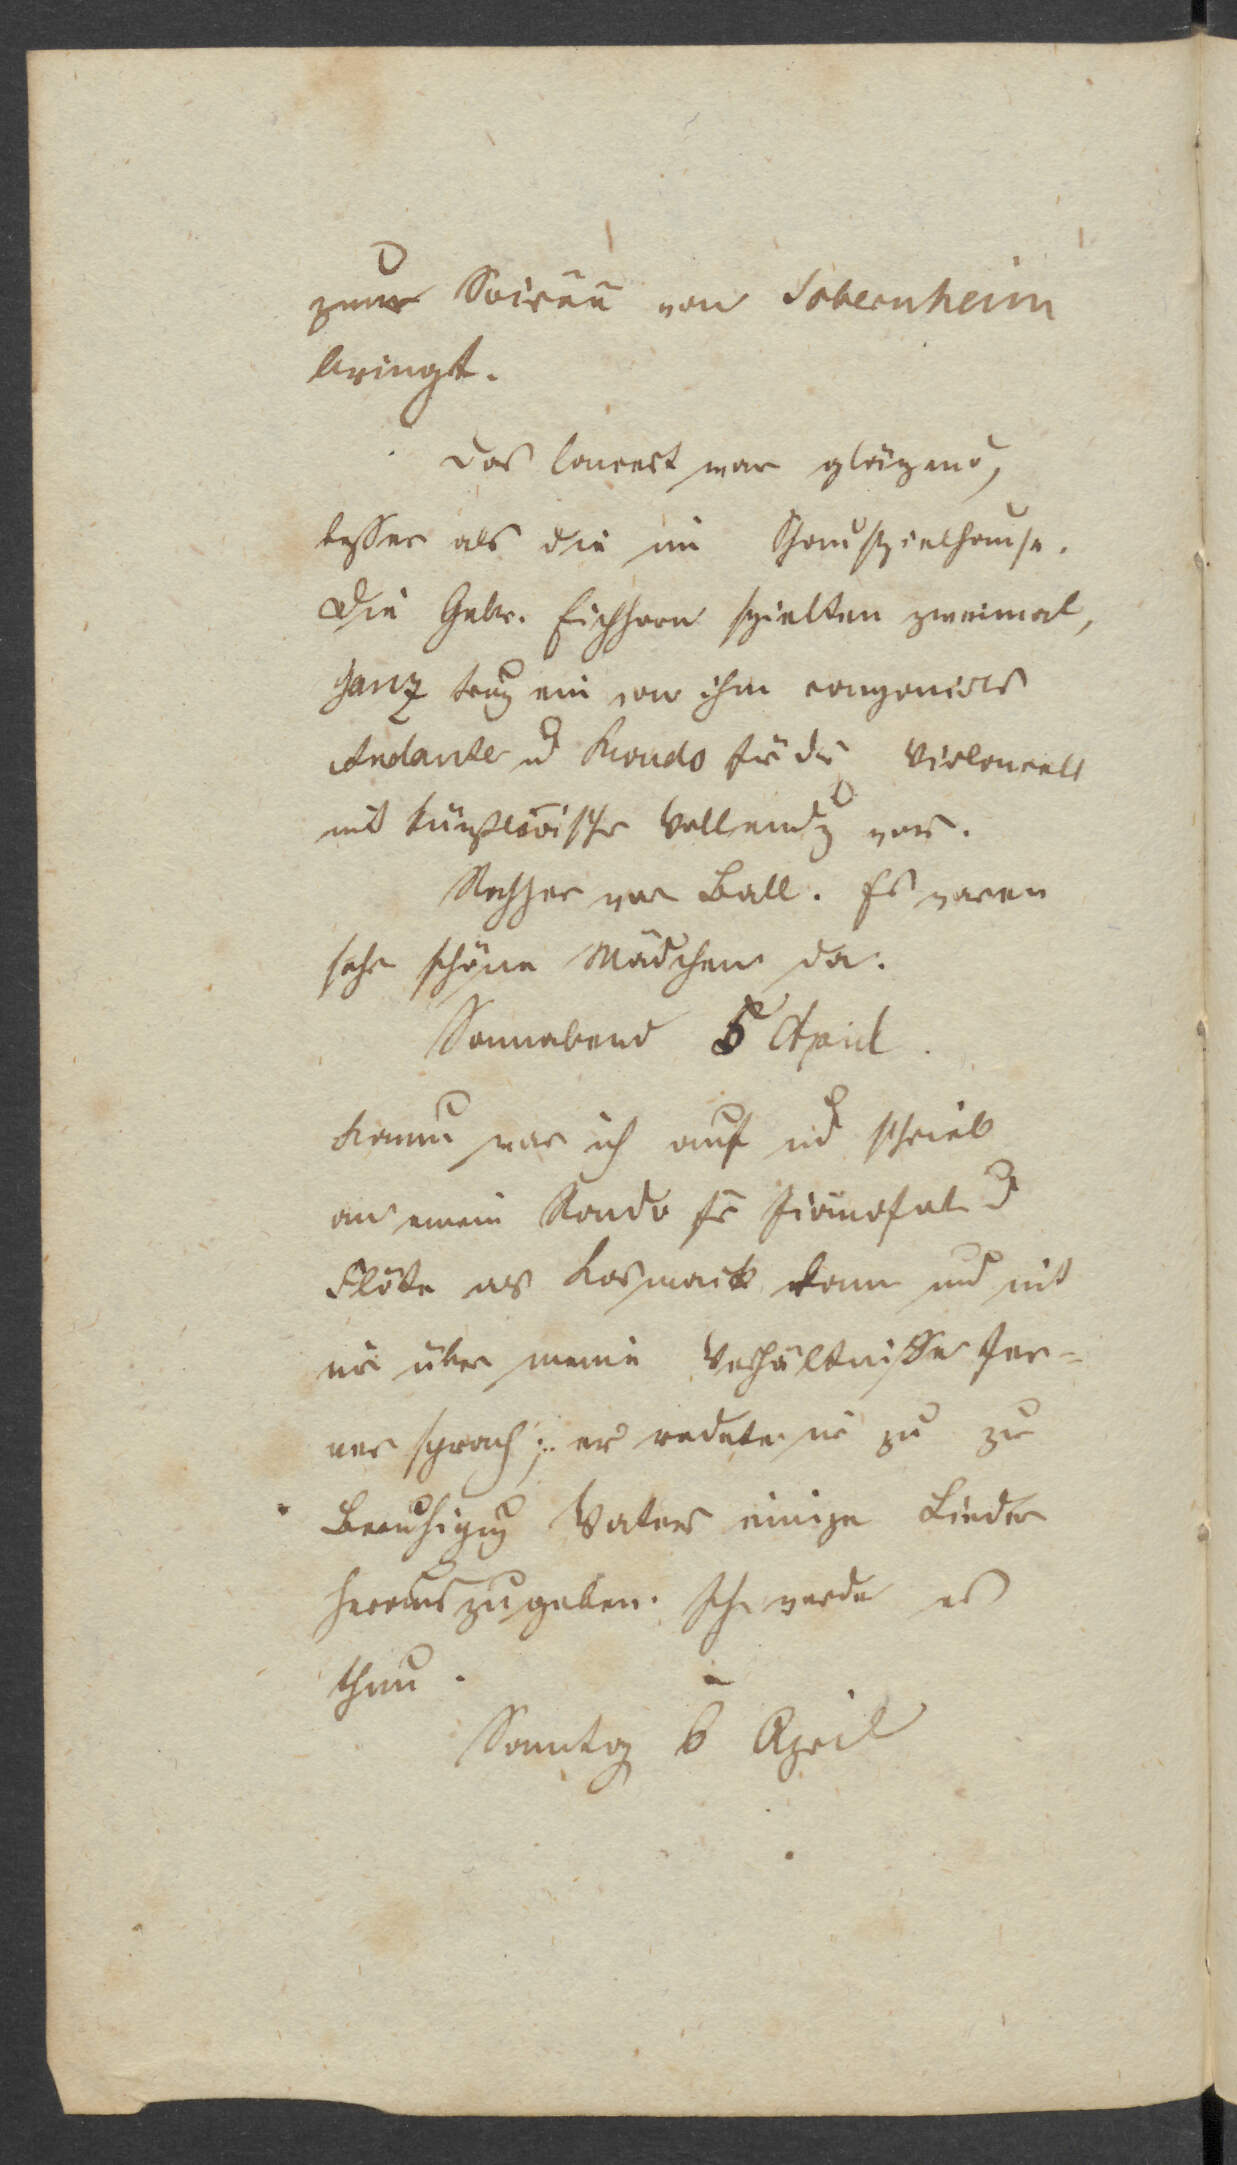 zur Soirée von Sobernheim
bringt.
Das Concert war gläzend,
besser als die im Schauspielhause.
Die Gebr. Eichhorn spielten zweimal,
Ganz trug ein von ihm componirtes
Andante ud Rondo für das Violoncell
mit künstlerischer Vollendg vor.
Nachher war Ball. Es waren
sehr schöne Mädchen da.
Sonnabend 5 April.
Kaum war ich auf ud schrieb
an einem Rondo für Pianofort u
Flöte als Kosmack kam und mit
mir über meine Verhältnisse fer-
ner sprach; er redete mir zu zur
Beruhigug Vaters einige Lieder
herauszugeben. Ich werde es
thun.
Sonntag 6 April